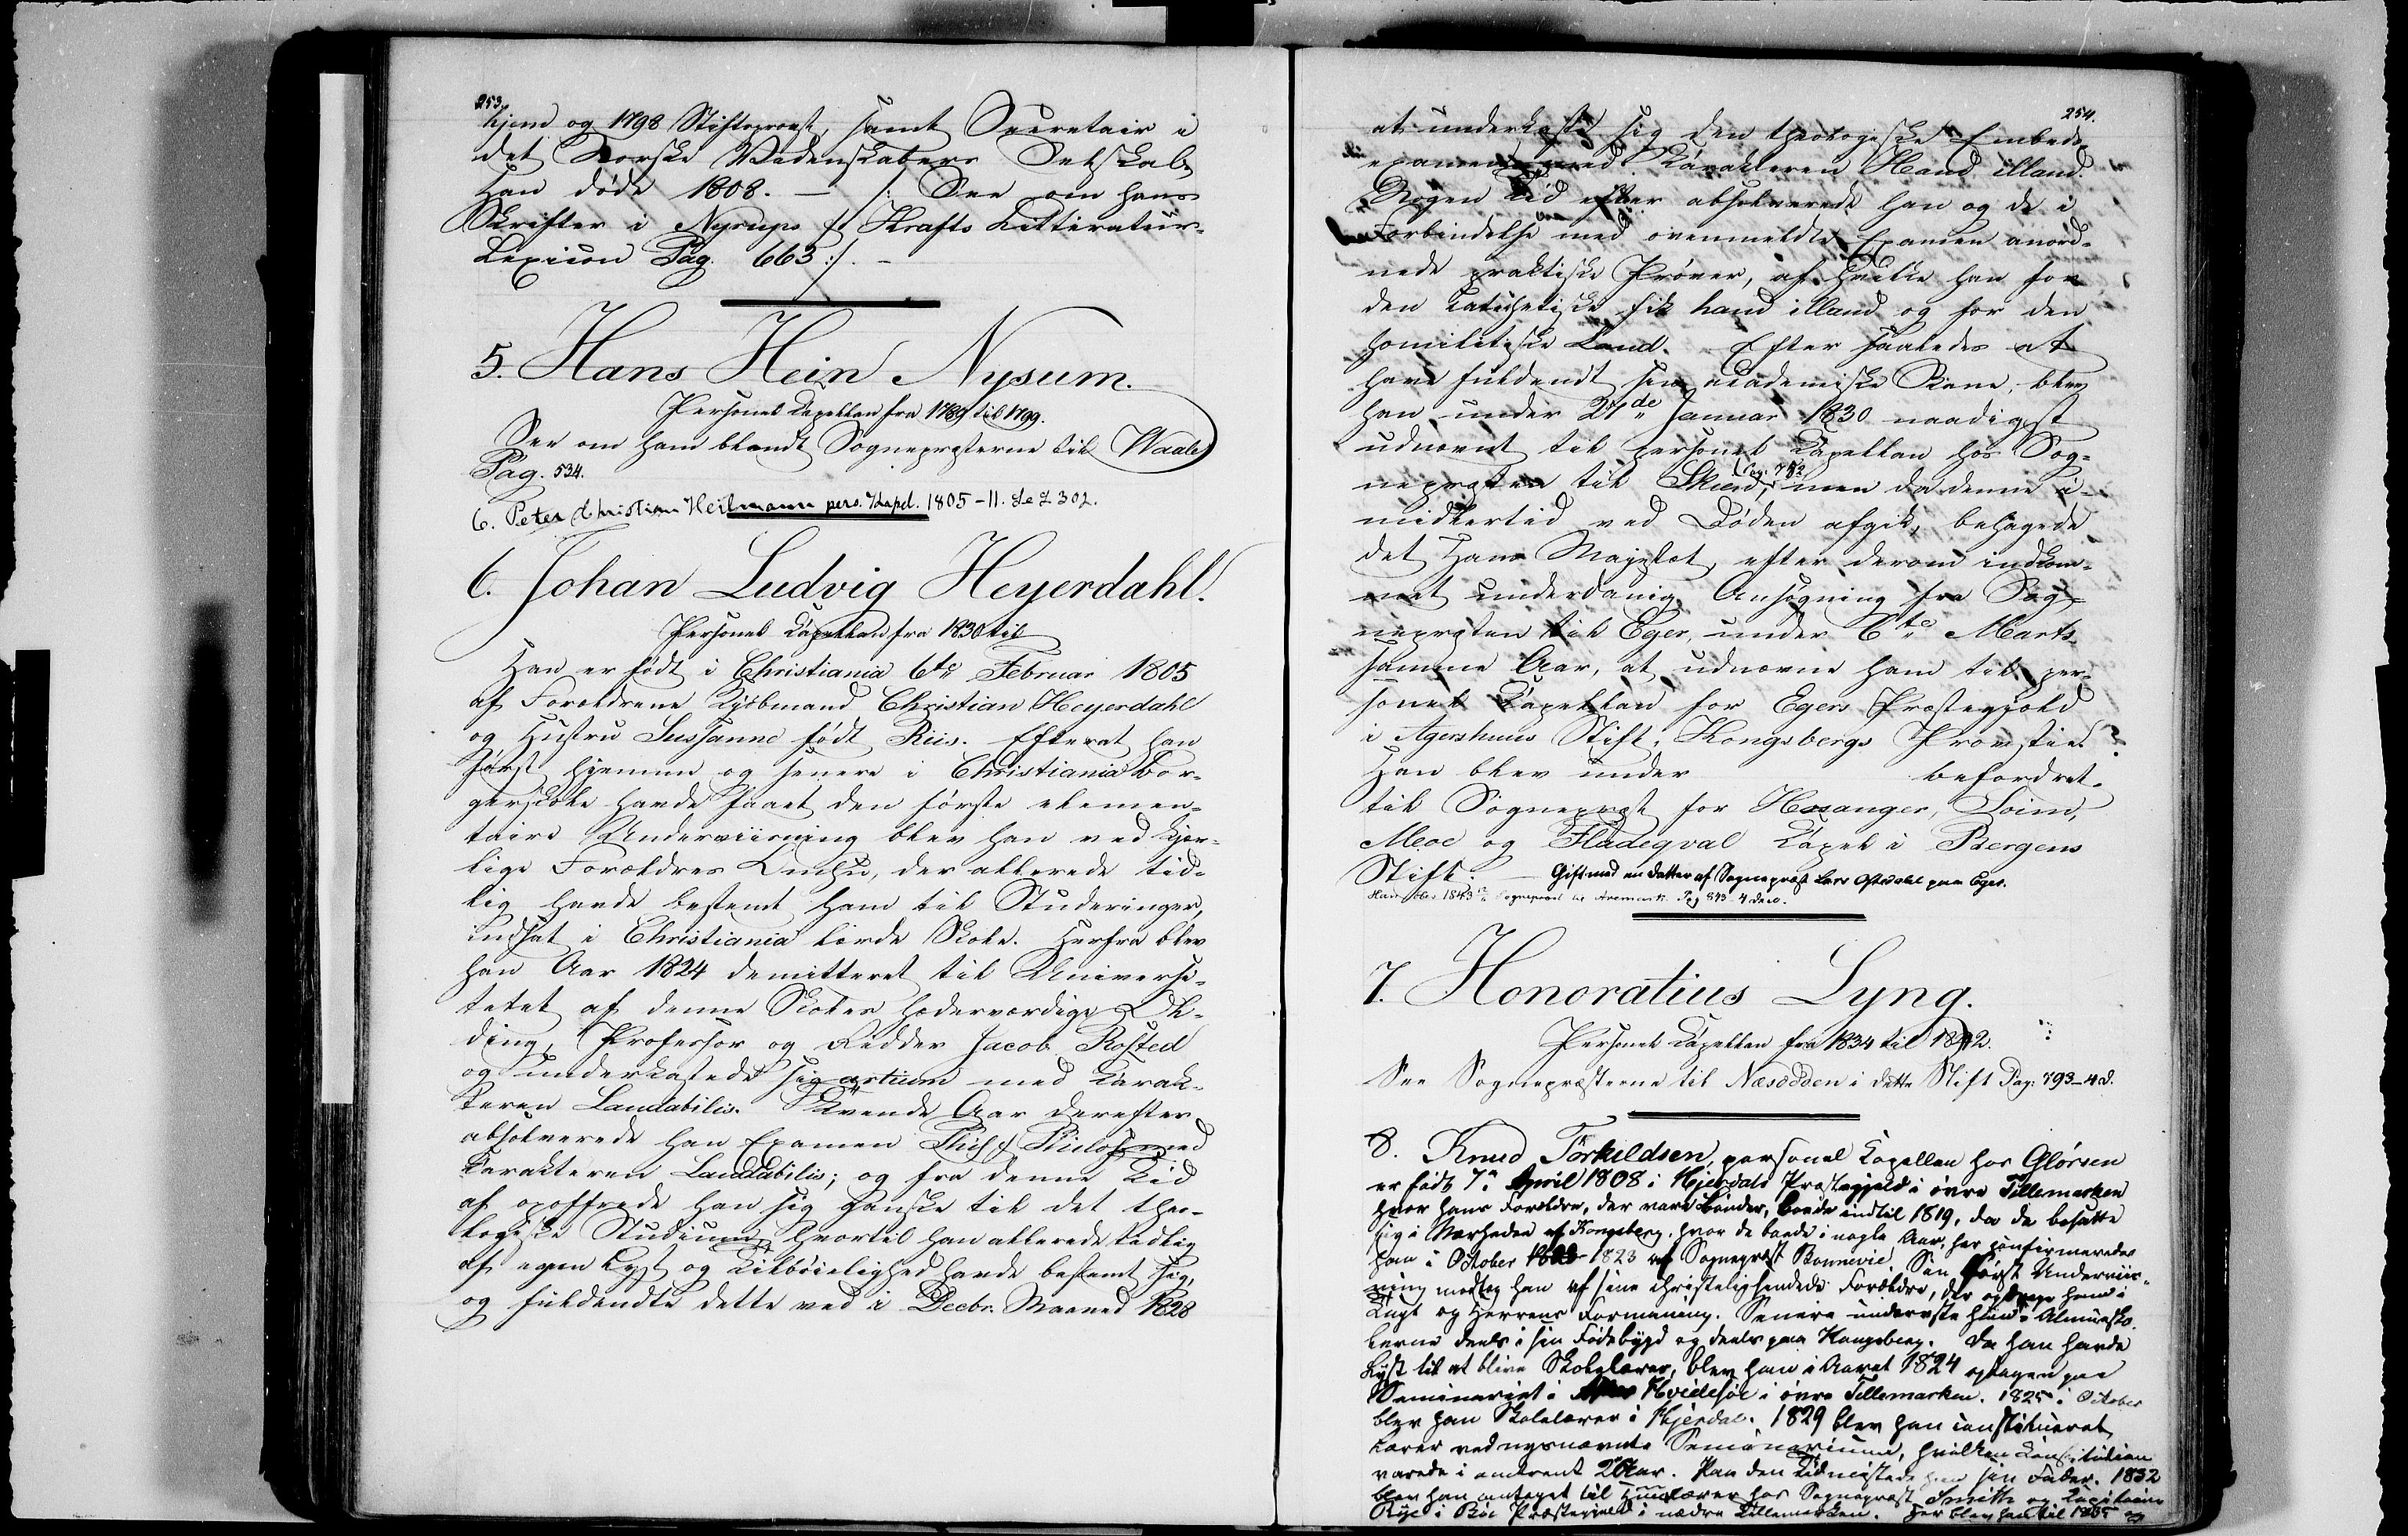 253.
hjem og 1798 Stiftsprovst, samt Secretair i
det Norske Videnskabers Selskab,
Han døde 1808. — /: See om hans
Skrifter i Nyerups & Krafts Litteratur-
Lexicon Pag. 663 :/. –
5. Hans Hein Nysum.
Personel Capellan fra 1789 til 1799.
See om ham blandt Sognepræsterne til Waale
Pag. 534.
6. Peter Christian Heilmann pers. Kapel. 1805-11. Se Z 302.
6. Johan Ludvig Heyerdahl.
Personel Capellan fra 1830 til
Han er født i Christiania 6te Februar 1805
af Forældrene Kjøbmand Christian Heyerdahl
og Hustru Sussanne født Riis. Efterat han
først hjemme og senere i Christiania Bor-
gerskole havde faaet den første elemen-
taire Underviisning blev han ved kjær-
lige Forældres Omhu, der allerede tid-
lig havde bestemt ham til Studeringer,
indsat i Christiania lærde Skole. Herfra blev
han Aar 1824 demitteret til Universi-
tetet af denne Skoles hæderværdige Ol-
ding, Professor og Ridder Jacob Rosted
og underkastede sig artium med Karak-
teren Laudabilis. Tvende Aar derefter
absolverede han Examen Phil. & Philos. med
Karakteren Laudabilis; og fra denne Tid
af opoffrede han sig ganske til det theo-
logiske Studium, hvortil han allerede tidlig
af egen Lyst og Tilbøielighed havde bestemt sig,
og fuldendte dette ved i Decbr. Maaned 1828
254.
at underkaste sig den theologiske Embeds-
examen med Karakteren Haud illaud.
Nogen Tid efter absolverede han og de i
Forbindelse med ovenmeldte Examen anord-
nede praktiske Prøver, af hvilke han for
den katechetiske fik haud illaud og for den
homiletiske Laud. Efter saaledes at
have fuldendt sin academiske Bane, blev
han under 27de Januar 1830 naadigst
udnævnt til personel Capellan hos Sog-
nepræsten til Skied, Pag. 782 men da denne i-
midlertid ved Døden afgik, behagede
det Hans Majestæt, efter derom indkom-
met underdanig Ansøgning fra Sog-
nepræsten til Eger, under 6te Marts
samme Aar, at udnævne ham til per-
sonel Capellan for Egers Præstegjeld
i Agershuus Stift, Kongsbergs Provstie.
Han blev under befordret
til Sognepræst for Hosanger, Loim,
Meoe og Fladeqval Capel i Bergens
Stift. — Gift med en Datter af Sognepræst Lars Oftedahl paa Eger.
Han blev 1843 Sognepræst til Aremark. Pag 893. 4de D.
7. Honoratius Lyng.
Personel Capellan fra 1834 til 1842.
See Sognepræsterne til Næsodden i dette Stift Pag: 793-4 d.
8. Knud Torkildsen, personel Capellan hos Glørsen
er født 7. April 1808 i Hjerdals Præstegjeld i øvre Tillemarken
hvor hans Forældre, der vare Bønder, boede indtil 1819, da de bosatte
sig i Nærheden af Kongsberg, hvor de boede i nogle Aar, her confirmeredes
han i October 1823 af Sognepræst Bonnevie. Sin første Underviis-
ning modtog han af sine christeligsindede Forældre, der opdroge ham i
Tugt og Herrens Formaning. Senere underviste han i Almuesko-
lerne deels i sin Fødebygd og deels paa Kongsberg. Da han havde
Lyst til at blive Skolelærer, blev han i Aaret 1824 optagen paa
Seminariet i Hvidesøe i øvre Tillemarken. 1825 i October
blev han Skolelærer i Hjerdal. 1829 blev han constitueret
Lærer ved nysnævnte Seminarium, hvilken Constitution
varede i omtrent 2 Aar. Paa den Tid mistede han sin Fader. 1832
blev han antaget til Huuslærer hos Sognepræst Smith og
Rye i Bøe Præstegjeld i nedre Tillemarken. Her blev han til 1835 og